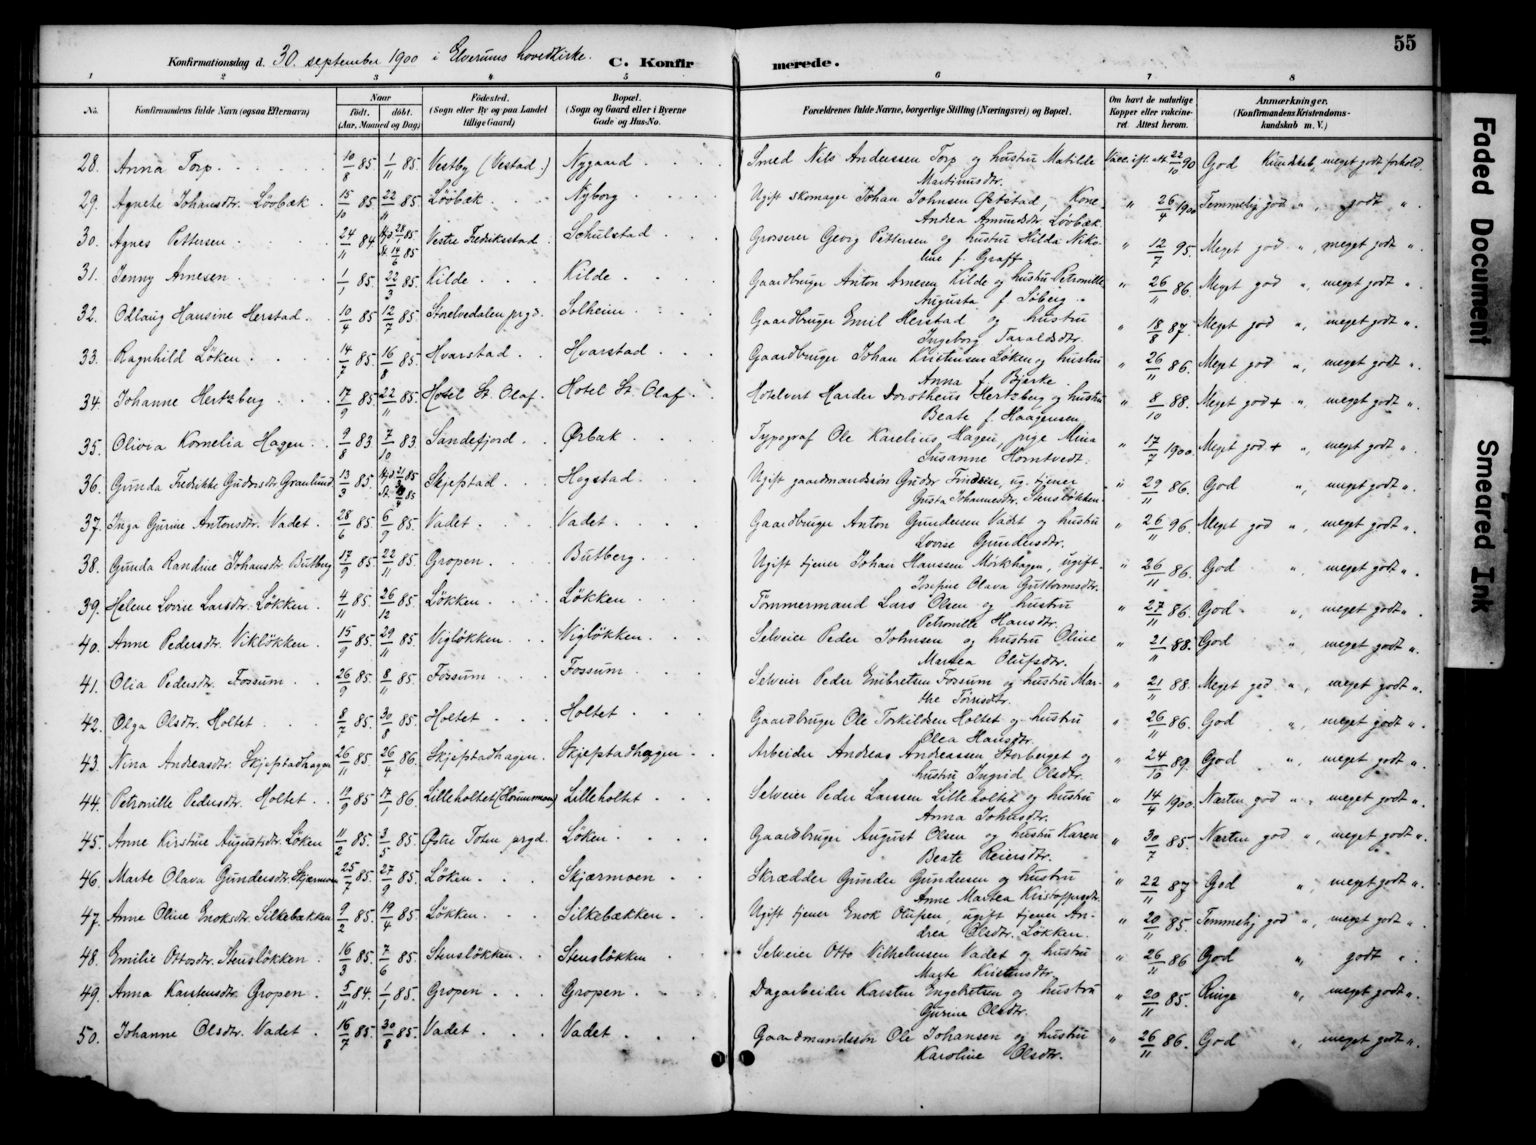 55
Konfirmationsdag d. 30. september 1900 i Elverums hovedkirke. C. Konfirmerede.
1 2 3 4 5 6 7 8
No. Konfirmandens fulde Navn (ogsaa Efternavn) Naar Født. døbt. (Aar, Maaned og Dag) Fødested. (Sogn eller By og paa Landet tillige Gaard) Bopæl. (Sogn og Gaard eller i Byerne Gade og Hus-No. Forældrenes fulde Navne, borgerlige Stilling (Næringsvei) og Bopæl. Om havt de naturlige Kopper eller vaccineret. Attest herom. Anmærkninger. (Konfirmandens Kristendomskundskab m. V.)
28. Anna Torp 10/8 85 1/11 85. Vestby (Vestad.) Nygaard Smed Nils Anderssen Torp og hustru Mathilde Vacc. ifl. At. 22/10 90 God Kundskab, meget godt forhold.
Martinusdtr.
29. Agnete Johansdtr. Lövbæk 15/10 85 22/11 85. Lövbæk Nyborg Ugift skomager Johan Johnsen Gletstad, Kone " 26/4 1900 Temmelig god " , godt ".
Andrea Amundsdtr. Lövbæk
30. Agnes Pettersen 24/11 84 Hjd 28/1 85 St. 14/6 85 Vestre Fredriksstad Schulstad Grosserer Georg Pettersen og hustru Hilda Niko- " 12/7 95. Meget god " , meget godt ".
line f. Graff.
31. Jenny Arnesen 1/1 85. 22/3 85. Kilde Kilde Gaardbruger Anton Arnesen Kilde og hustru Petronille " 26/11 86. Meget god " , meget godt ".
Augusta f. Söberg.
32. Odlaug Hansine Herstad 10/4 85 12/7 85. Storelvedalen prgd. Solheim Gaardbruger Emil Herstad og hustru " 18/8 87. Meget god " , meget godt ".
Ingeborg Taraldsdtr.
33. Ragnhild Löken 14/7 85. 16/8 85. Hvarstad Hvarstad Gaardbruger Johan Kristiansen Löken og hustru " 26/11 86. Meget god " , meget godt ".
Anna f. Bjerke.
34. Johanne Hertzberg 17/9 85. 22/11 85. Hotel St. Olaf. Hotel St. Olaf Hotelvert Harder Dorotheus Hertzberg og hustru " 8/10 88. Meget god + " , meget godt ".
Beate f. Haagensen
35. Olivia Kornelia Hagen 9/8 83 7/10 83. Sandefjord Ørbæk Typograf Ole Karelius Hagen, pige Mina " 17/7 1900. Meget god + " , meget godt ".
Susanne Horntvedt.
36. Gunda Fredrikke Gudmsdtr. Granlund 13/3 85. Skjefstad Hogstad Ugift gaardmandssön , ug. tjener " 29/11 86. God " , meget godt ".
Gusta Johannesdtr. Stenslökken
37. Inga Gurine Antonsdtr. Vadet 28/6 85 6/9 85. Vadet Vadet Gaardbruger Anton Gundersen Vadet og hustru " 26/11 96. Meget god " , meget godt ".
Lovise Gundersdtr.
38. Gunda Randine Johansdtr. Butberg 17/9 85 22/11 85. Gropen Butberg Ugift tjener Johan Hanssen Mörkhagen, ugift " 26/11 86. God " , meget godt ".
Josefine Olava Guttormsdtr.
39. Helene Lovise Larsdtr. Lökken 4/11 85. 26/12 85. Lökken Lökken Tömmermand Lars Olsen og hustru " 27/11 86. God " , meget godt ".
Petronille Hansdtr.
40. Anne Pedersdtr. Viklökken 15/9 85. 29/11 85. Viglökken Viglökken Selveier Peder Johnsen og hustru Oline " 21/11 88. God " , meget godt ".
Martea Olufsdtr.
41. Olia Pedersdtr. Fossum 26/9 85. 8/11 85. Fossum Fossum Selveier Peder Embretsen Fossum og hustru Mar- " 21/11 88. Meget god " , meget godt ".
the Törrisdtr.
42. Olga Olsdtr. Holtet 8/7 85 30/8 85. Holtet Holtet Gaardbruger Ole Torkildsen Holtet og hustru " 26/11 86. God " , meget godt ".
Olea Hansdtr.
43. Nina Andreasdtr. Skjefstadhagen 26/11 85. 26/4 86. Skjefstadhagen. Skjefstadhagen Arbeider Andreas Andreassen Storberget og " 24/10 89. God " , meget godt ".
hustru Ingrid Olsdtr.
44. Petronille Pedersdtr. Holtet 10/9 85. 17/1 86. Lilleholtet (Hornmoen) Lilleholtet Selveier Peder Larssen Lilleholtet og hustru " 14/4 1900. Næsten god " , meget godt ".
Anna Johnsdtr.
45. Anne Kirstine Augustsdtr. Löken 11/2 85. 3/5 85. Østre Toten prgd. Löken Gaardbruger August Olsen og hustru Karen " 30/7 85. Næsten god " , meget godt ".
Beate Reiersdtr.
46. Marte Olava Gundersdtr. Skjærmoen 25/7 85. 27/9 85. Löken Skjærmoen Skrædder Gunder Gundersen og hustru " 22/11 87 God " , meget godt ".
Anne Martea Kristoffersdtr.
47. Anne Oline Enoksdtr. Silkebækken 9/2 85. 19/4 85. Lökken Silkebækken Ugift tjener Enok Olufsen, ugift tjener An- " 20/11 85. Temmelig god " , meget godt ".
drea Olsdtr. Lökken.
48. Emilie Ottosdtr. Stenslökken 16/3 85. 7/6 85. Stenslökken Stenslökken Selveier Otto Vilhelmsen Vadet og hustru " 26/11 86 God " , godt ".
Marte Kristensdtr.
49. Anna Karstensdtr. Gropen 5/11 84. 1/1 85. Gropen Gropen Dagarbeider Karsten Engebretsen og hustru " 20/11 85. Ringe " , meget godt ".
Gurine Olsdtr.
50. Johanne Olsdtr. Vadet 16/7 85. 30/8 85. Vadet Vadet Gaardmandssön Ole Johansen og hustru " 26/11 86. God " , meget godt ".
Karoline Olsdtr.
Faded Document
Smeared Ink